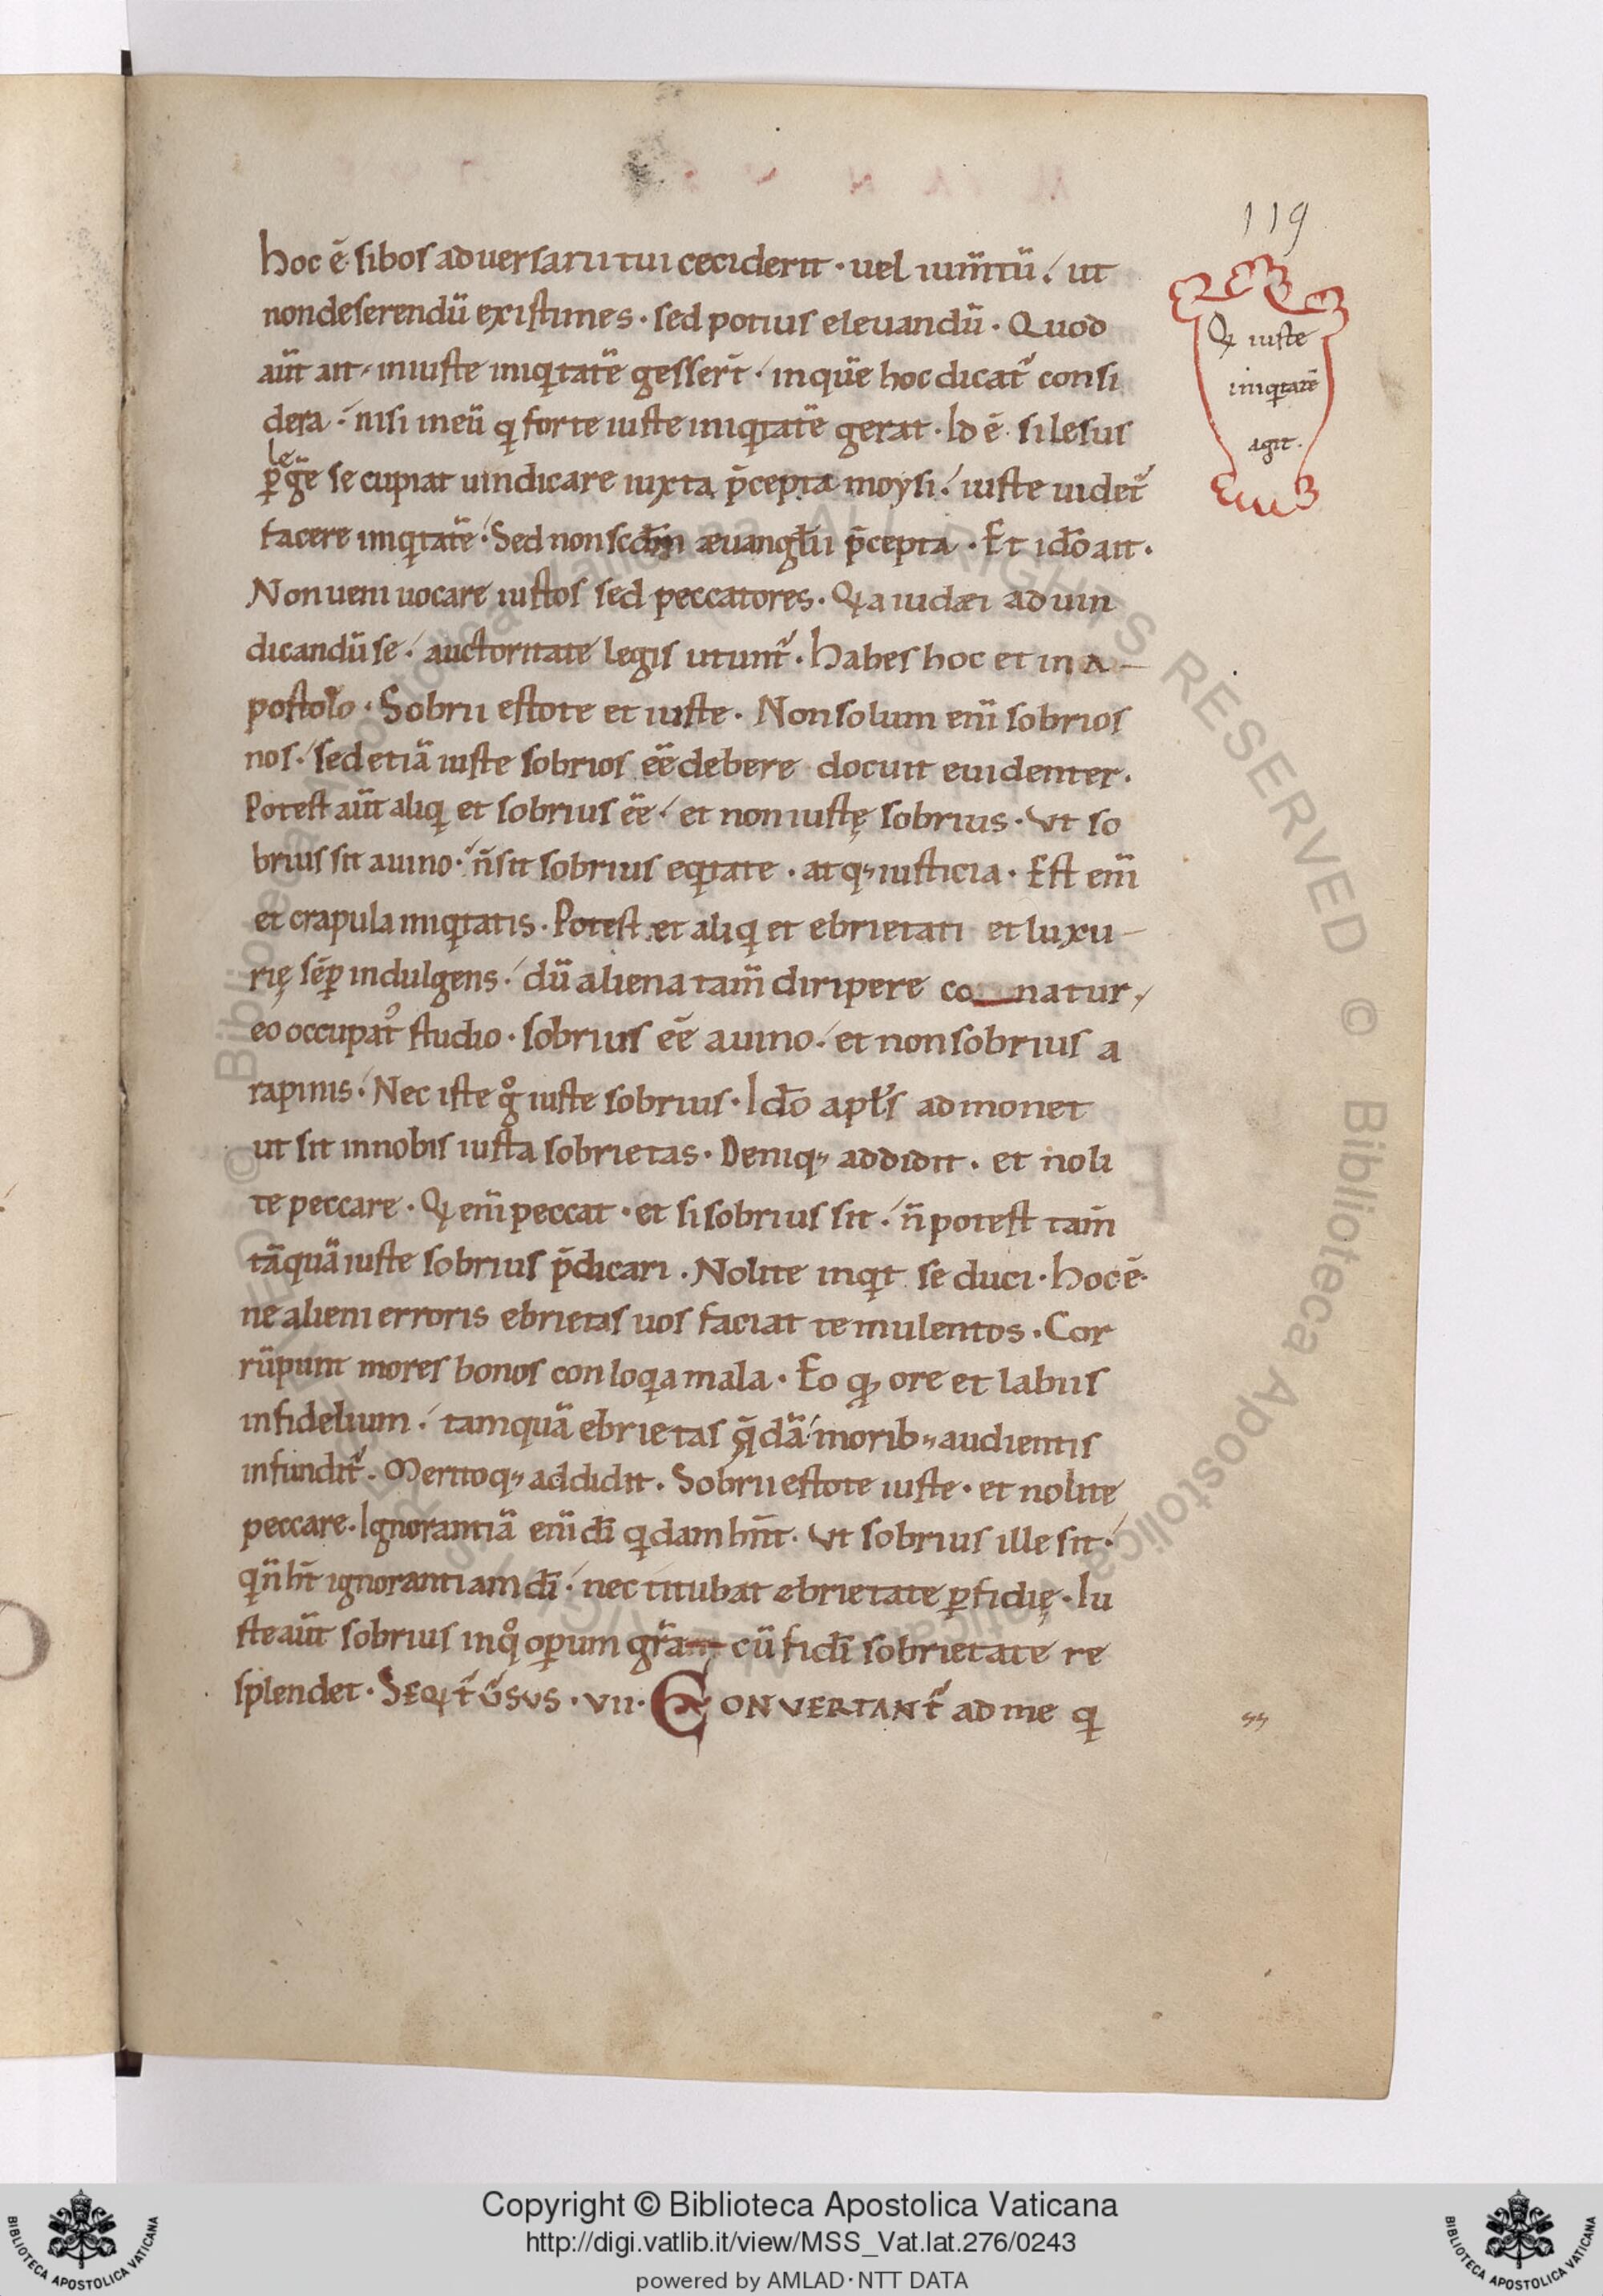 119
hoc ē si bos aduersarii tui ceciderit · uel ium̄tū ./ ut
non deserendū existimes · sed potius eleuandū · Quod
aūt ait ./ iniuste iniqitatē gesser̄t · in quē hoc dicat̄ consi
dera ./ nisi in eū qi forte iuste iniqitatē gerat · Id ē si lesus
p̱ legē se cupiat uindicare iuxta p̄cepta moysi ./ iuste uidet̄
facere iniqitatē ./ Sed non scdm̄ æuanglii p̄cepta · Et idō ait ·
Non ueni uocare iustos sed peccatores · Qia iudæi ad uin
dicandū se ./ auctoritate legis utunt̄ · habes hoc et in a–
postolo · Sobrii estote et iuste · Non solum enī sobrios
nos ./ sed etiā iuste sobrios eē debere docuit euidenter ·
Potest aūt aliqi et sobrius eē ./ et non iustę sobrius · Ut so
brius sit a uino ./ n̄ sit sobrius eqitate · atq; iusticia · Est enī
et crapula iniqitatis · Potest et aliqi et ebrietati et luxu–
rię sēp̱ indulgens ./ dū aliena tam̄ diripere co natur ./
eo occupat᾽ studio · sobrius eē a uino ./ et non sobrius a
rapinis ./ Nec iste gͦ iuste sobrius · Idō apłs admonet
ut sit in nobis iusta sobrietas · Deniq; addidit · et noli
te peccare · Qi enī peccat · et si sobrius sit ./ n̄ potest tam̄
tāquā iuste sobrius p̄dicari · Nolite inqit seduci · hoc ē ·
ne alieni erroris ebrietas uos faciat temulentos · Cor
rūpunt mores bonos conloqia mala · Eo qđ ore et labiis
infidelium ./ tamquā ebrietas q̄dā ./ morib; audientis
infundit̄ · Meritoq; addidit · Sobrii estote iuste · et nolite
peccare · Ignorantiā enī dī qidam hn̄t · Ut sobrius ille sit ./
qi n̄ ht̄ ignorantiam dī ./ nec titubat ebrietate p̱fidię · Iu
ste aūt sobrius in qͦ op̱um gr̄a cū fidī sobrietate re
splendet · SEQIT̄ U̅SUS · VII · CONVERTANT̄ ad me qi
Qi iuste
iniqitatē
agit ·
Copyright © Biblioteca Apostolica Vaticana
http://digi.vatlib.it/view/MSS_Vat.lat.276/0243
powered by AMLAD·NTT DATA
BIBLIOTECA APOSTOLICA VATICANA
BIBLIOTECA APOSTOLICA VATICANA